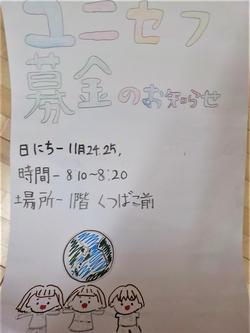 ユニセフ
募金のお知らせ
日にち-11月24.25,
時間-8:10~8:20
場所~1階 くつばこ前